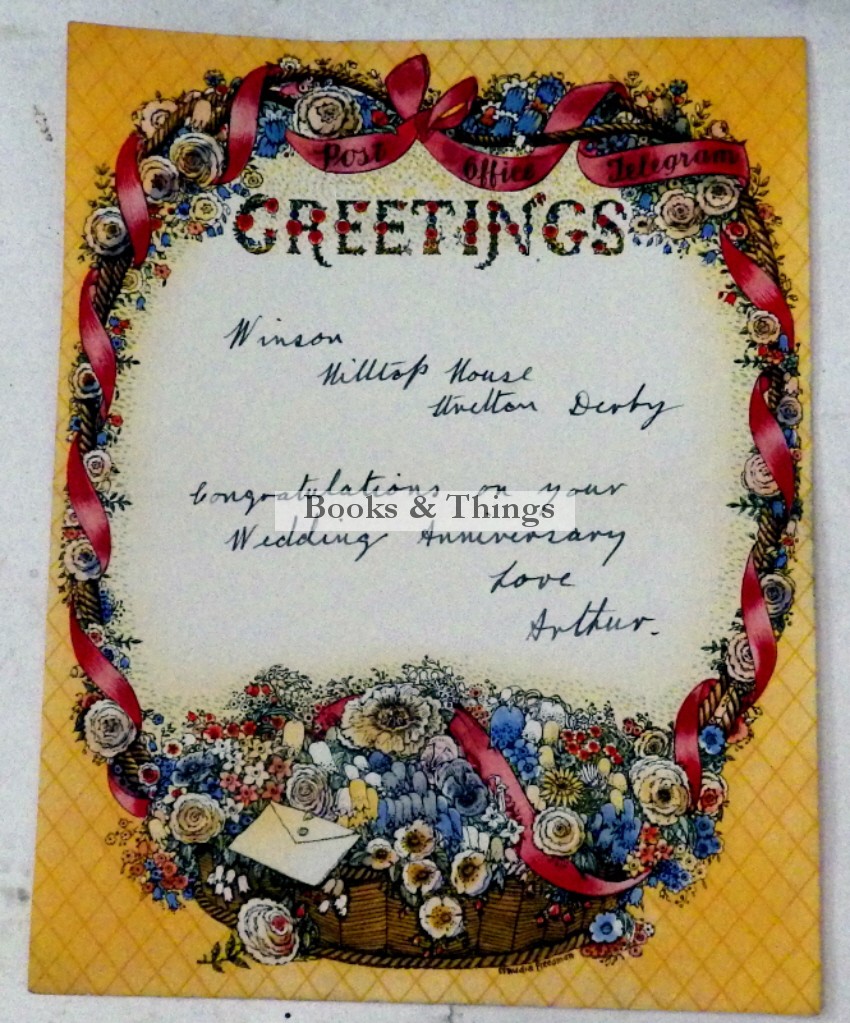 Post Office Telegram
GREETINGS
Winson
Hilltop House
Stretton Derby
Congratulations on your
Books & Things
Wedding Anniversary
Love
Arthur.
Claudia Freedman